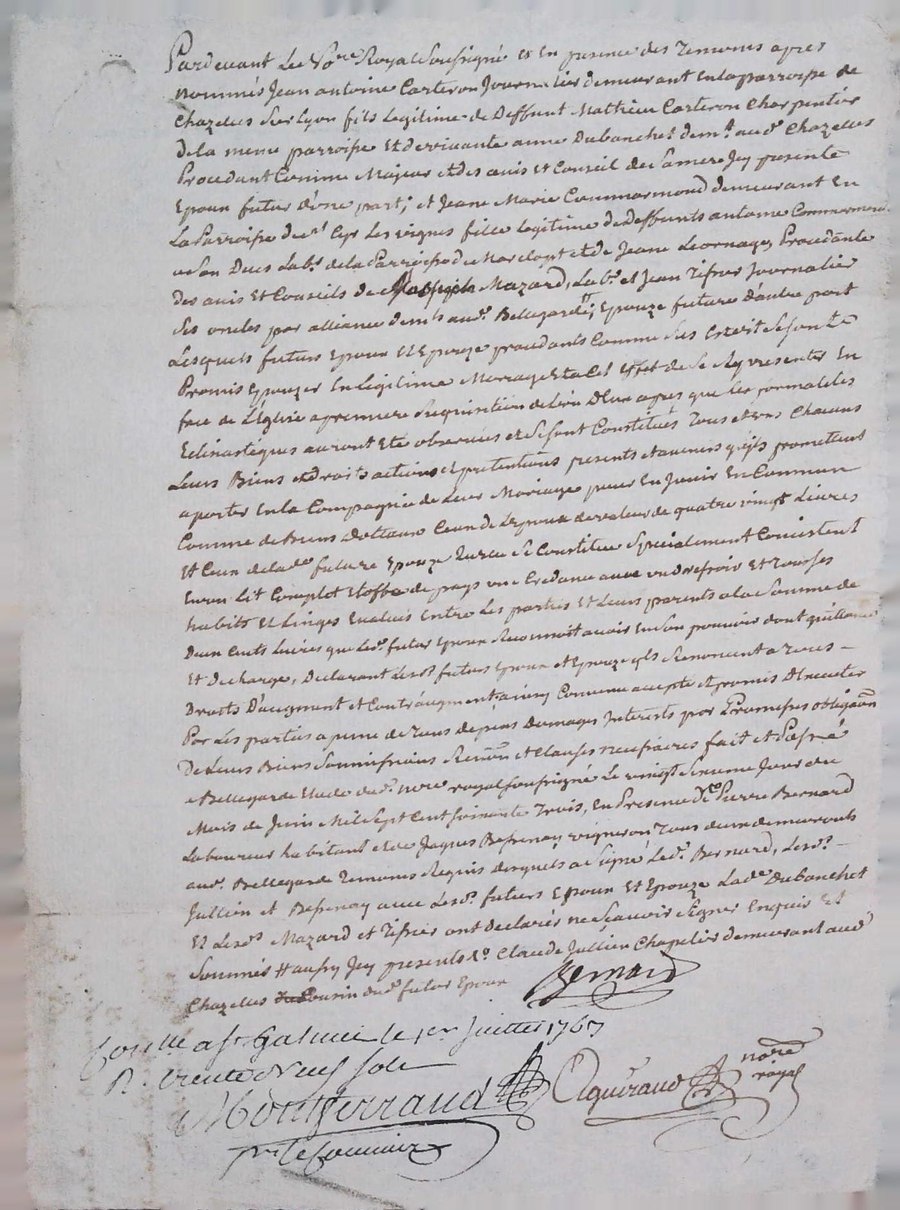 Pardevant Le No.re Royal Soussigné et En presence des Temoins apres
nommés Jean antoine Carteron Journalier demeurant En la parroisse de
Chazelles Sur Lyon fils Legitime de Deffunt Mathieu Carteron Charpentier
de la meme parroisse Et de vivante anne Dubanchet dem.t aud.t Chazelles
Procedant Comme Majeur et des avis et Conseil de Sa mere Jcy presente
Epoux futur d'une part; et Jeane Marie Commarmond demeurant En
La Parroisse de st Cyr Les vignes fille Legitime de Deffunts antoine Commarmond
Lab.r de la Parroisse de Marclopt et de Jeane Procedante
Des avis Et Conseils de Mazard, Lab.r et Jean Tisseur Journalier
Ses oncles par alliance dem.ts aud.t Bellegarde, Epouze future d'autre part
Lesquels futurs Epoux Et Epouze procedants Comme dessus Se sont
Promis Epouzer En Legitime Marriage Et a Cet Effet de Se presenter En
face de L'Eglise a premiere Requisition de L'un D'eux apres que les formalités
auront Eté observées et Se sont Constitués Tous et uns Chacuns
Leurs Biens et droits actions et pretentions presents et avenirs qu'ils promettent
aporter En la Compagnie de Leur Mariage pour En Jouir En Commun
Comme de Biens Dottaux Ceux de L'Epoux de valeur de quatre vingt Livres
Et Ceux de lad.e future Epouze Se Constitue Specialement Consistent
En un Lit Complet Etoffe de pays une avec un et
habits Et Linges Evalués Entre Les parties Et Leurs parents a la Somme de
Deux Cents Livres que Led.t futur Epoux Reconnoit avoir En Son pouvoir dont quittance
Et Decharge, Declarant Lesd.s futurs Epoux et Epouze qu'ils Renoncent a Tous
Droits D'augment et Contr'augment ainsy Convenu accepté et promis D'Executer
Par Les parties a peine de Tous depens Domages Interests par Promesses obligaõn
De Leurs Biens Soumissions Renõn et Clauses necessaires fait et Passé
a Bellegarde Etude dud.t No.re royal Soussigné Le vingt Jour du
Mois de Juin Mil Sept Cent Soixante Trois, En Presence De Pierre Bernard
Laboureur habitant et de Jaques Bessenay vigneron Tous deux demeurants
aud.t Bellegarde Temoins Requis desquels a Signé Led.t Bernard, Lesd.s
Jullien et Bessenay avec Lesd.s futurs Epoux Et Epouze Lad.e Dubanchet
Et Lesd.s Mazard et Tisseur ont declarés ne Scavoir Signer Enquis Et
Sommés Jcy presents S.r Claude Jullien Chapelier demeurant aud.t
Chazelles Cousin dud.t futur Epoux
Bernard
a St Galmier le 1er Juillet 1763
R. trente neuf sols
Montferraud
Aguiraud
no.re
royal